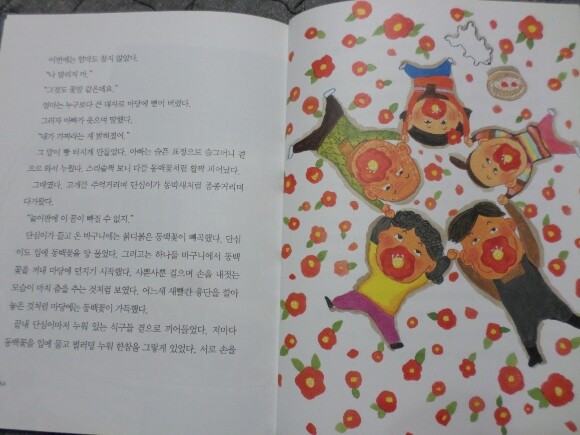 이번에는 엄마도 참지 않았다.
"나 말리지 마."
"그것도 꽃말 같은데요."
엄마는 누구보다 큰 대자로 마당에 뻗어 버렸다.
그러자 아빠가 웃으며 말했다.
"내가 가짜라는 게 밝혀졌어."
그 말이 빵 터지게 만들었다. 아빠는 슬픈 표정으로 슬그머니 곁
으로 와서 누웠다. 스리슬쩍 보니 다들 동백꽃처럼 활짝 피어났다.
그때였다. 고개를 주억거리며 단심이가 동박새처럼 종종거리며
다가왔다.
"놀이판에 이 몸이 빠질 수 없지."
단심이가 들고 온 바구니에는 붉디붉은 동백꽃이 빼곡했다. 단심
이도 입에 동백꽃을 앙 물었다. 그리고는 하나둘 바구니에서 동백
꽃을 꺼내 마당에 던지기 시작했다. 사뿐사뿐 걸으며 손을 내젓는
모습이 마치 춤을 추는 것처럼 보였다. 어느새 새빨간 융단을 깔아
놓은 것처럼 마당에는 동백꽃이 가득했다.
끝내 단심이마저 누워 있는 식구들 곁으로 끼어들었다. 저마다
동백꽃을 입에 물고 벌러덩 누워 한참을 그렇게 있었다. 서로 손을